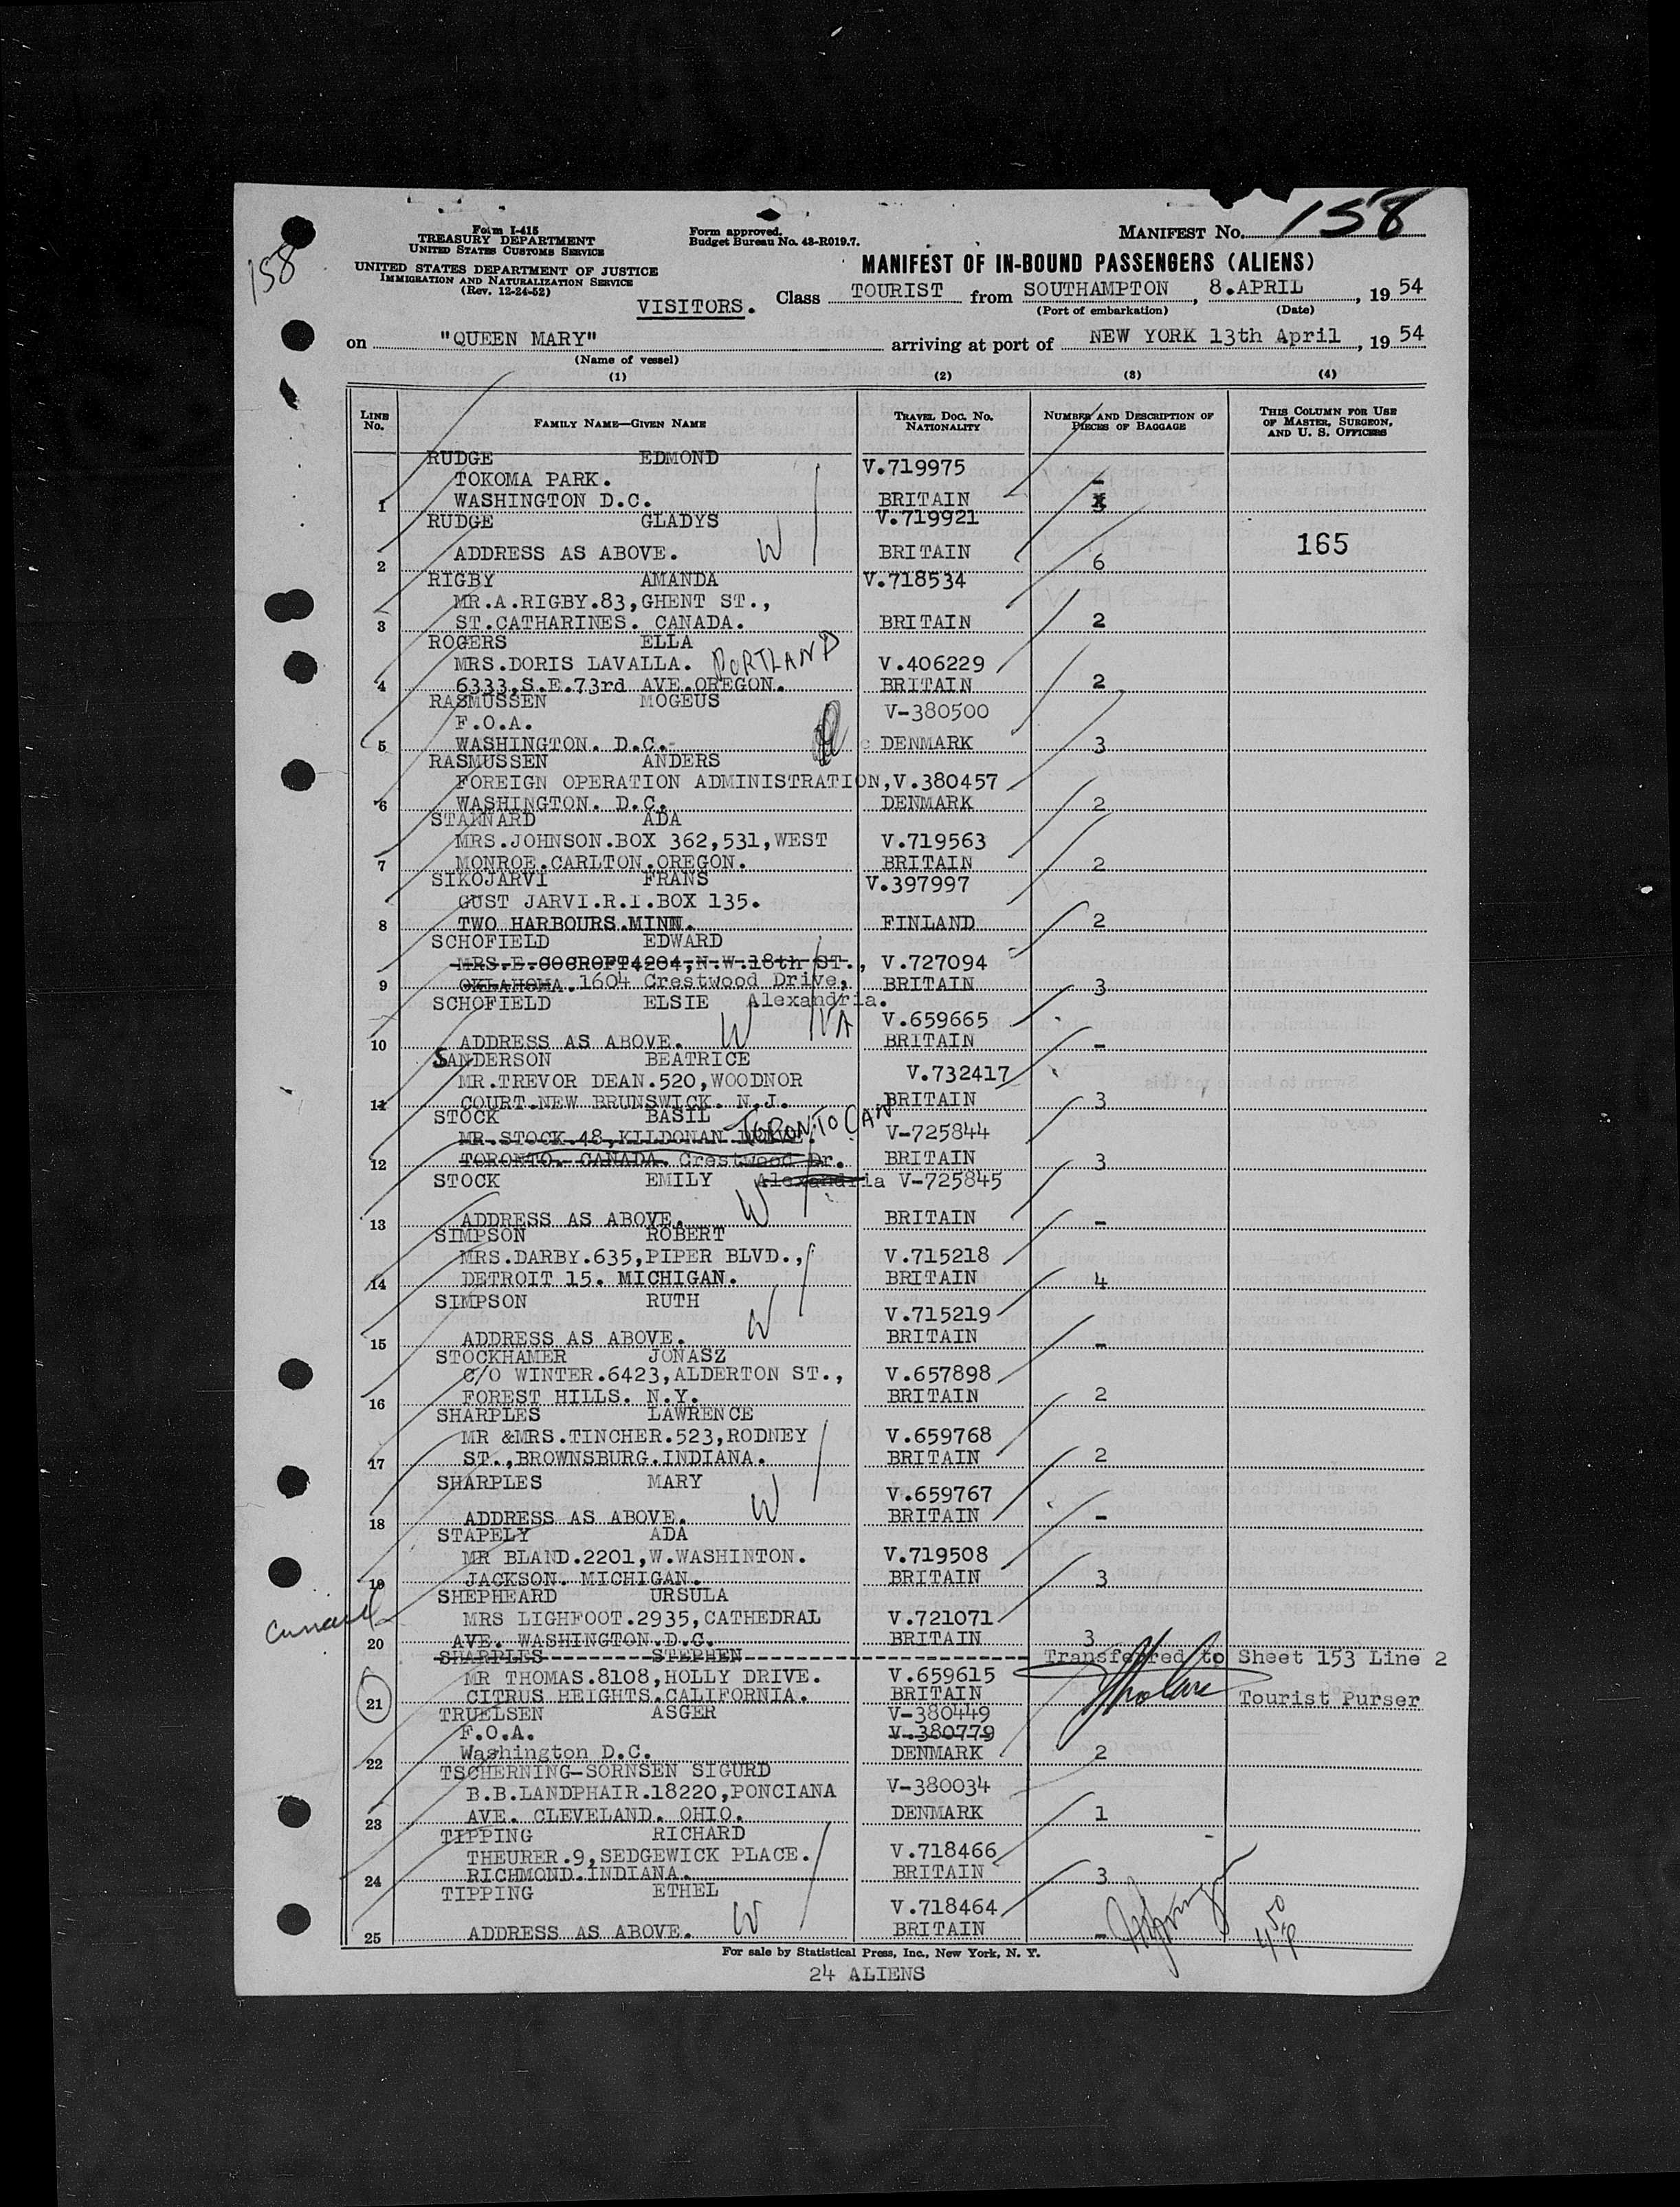 158
158
Form I-415
TREASURY DEPARTMENT
UNITED STATES CUSTOMS SERVICE
UNITED STATES DEPARTMENT OF JUSTICE
IMMIGRATION AND NATURALIZATION SERVICE
(Rev. 12-24-52)
Form approved.
Budget Bureau No. 43-R019.7.
MANIFEST No. 158
MANIFEST OF IN-BOUND PASSENGERS (ALIENS)
VISITORS. Class TOURIST from SOUTHAMPTON, 8.APRIL, 19 54
(Port of embarkation) (Date)
on "QUEEN MARY" arriving at port of NEW YORK 13th April, 19 54
(Name of vessel)
(1) (2) (3) (4)
LINE No. FAMILY NAME—GIVEN NAME TRAVEL DOC. NO. NATIONALITY NUMBER AND DESCRIPTION OF PIECES OF BAGGAGE THIS COLUMN FOR USE OF MASTER, SURGEON, AND U. S. OFFICERS
RUDGE EDMOND V.719975
TOKOMA PARK. -
1 WASHINGTON D.C. BRITAIN
RUDGE GLADYS V.719921
2 ADDRESS AS ABOVE. W BRITAIN 6 165
RIGBY AMANDA V.718534
MR.A.RIGBY.83,GHENT ST.,
3 ST.CATHARINES. CANADA. BRITAIN 2
ROGERS ELLA
MRS.DORIS LAVALLA. PORTLAND V.406229
4 6333,S.E.73rd AVE.OREGON. BRITAIN 2
RASMUSSEN MOGEUS V-380500
F.O.A.
5 WASHINGTON. D.C. DENMARK 3
RASMUSSEN ANDERS
FOREIGN OPERATION ADMINISTRATION, V.380457
6 WASHINGTON. D.C. DENMARK 2
STANNARD ADA
MRS.JOHNSON.BOX 362,531,WEST V.719563
7 MONROE.CARLTON.OREGON. BRITAIN 2
SIKOJARVI FRANS V.397997
GUST JARVI.R.I.BOX 135.
8 TWO HARBOURS.MINN. FINLAND 2
SCHOFIELD EDWARD
MRS.E.COCROFT4204,N.W.18th ST., V.727094
9 OKLAHOMA. 1604 Crestwood Drive, BRITAIN 3
SCHOFIELD ELSIE Alexandria.
VA V.659665
10 ADDRESS AS ABOVE. W BRITAIN -
SANDERSON BEATRICE
MR.TREVOR DEAN.520,WOODNOR V.732417
11 COURT.NEW BRUNSWICK. N.J. BRITAIN 3
STOCK BASIL TORONTO CAN
MR.STOCK.48,KILDONAN DRIVE. V-725844
12 TORONTO. CANADA. Crestwood Dr. BRITAIN 3
STOCK EMILY Alexandria V-725845
13 ADDRESS AS ABOVE. W BRITAIN -
SIMPSON ROBERT
MRS.DARBY.635,PIPER BLVD., V.715218
14 DETROIT 15. MICHIGAN. BRITAIN 4
SIMPSON RUTH V.715219
15 ADDRESS AS ABOVE. W BRITAIN -
STOCKHAMER JONASZ
C/O WINTER.6423,ALDERTON ST., V.657898
16 FOREST HILLS. N.Y. BRITAIN 2
SHARPLES LAWRENCE
MR &MRS.TINCHER.523,RODNEY V.659768
17 ST.,BROWNSBURG.INDIANA. BRITAIN 2
SHARPLES MARY V.659767
18 ADDRESS AS ABOVE. W BRITAIN -
STAPELY ADA
MR BLAND.2201,W.WASHINTON. V.719508
19 JACKSON. MICHIGAN. BRITAIN 3
SHEPHEARD URSULA
Cunard
MRS LIGHFOOT.2935,CATHEDRAL V.721071
20 AVE. WASHINGTON.D.C. BRITAIN 3
SHARPLES STEPHEN Transferred to Sheet 153 Line 2
MR THOMAS.8108,HOLLY DRIVE. V.659615
21 CITRUS HEIGHTS.CALIFORNIA. BRITAIN Tourist Purser
TRUELSEN ASGER V-380449
F.O.A. V-380779
22 Washington D.C. DENMARK 2
TSCHERNING-SORNSEN SIGURD
B.B.LANDPHAIR.18220,PONCIANA V-380034
23 AVE. CLEVELAND. OHIO. DENMARK 1
TIPPING RICHARD
THEURER.9,SEDGEWICK PLACE. V.718466
24 RICHMOND.INDIANA. BRITAIN 3
TIPPING ETHEL V.718464
25 ADDRESS AS ABOVE. W BRITAIN -
450 P
For sale by Statistical Press, Inc., New York, N. Y.
24 ALIENS